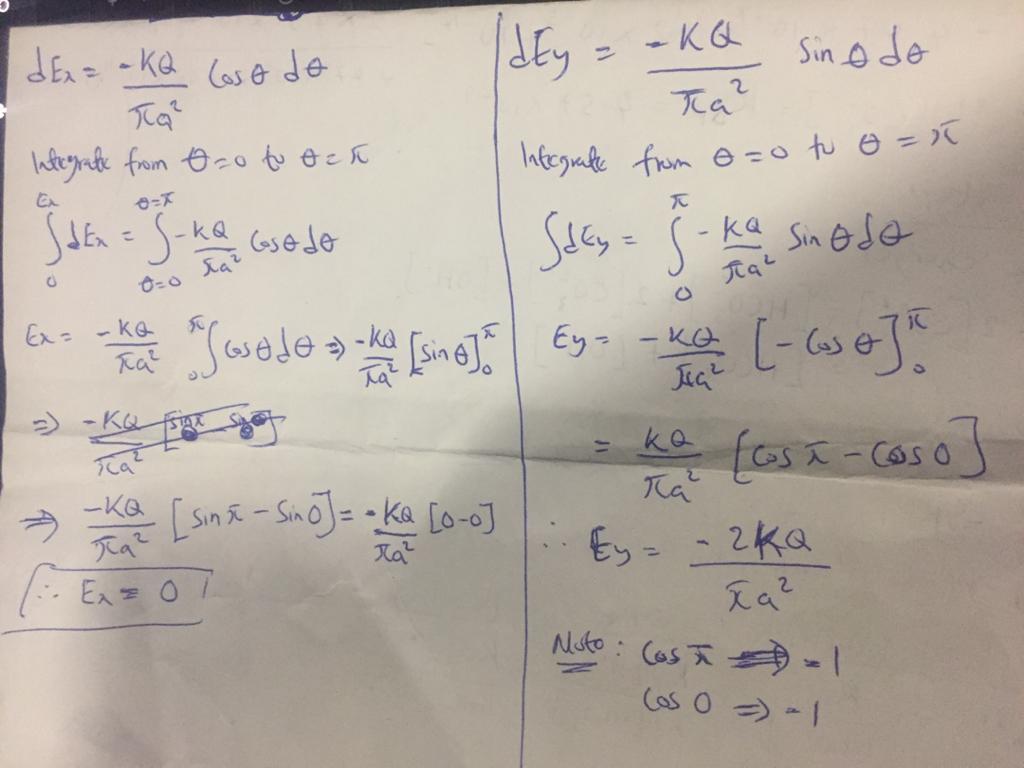 dEx = -KQ/πa² Cosθ dθ
Integrate from θ=0 to θ=π
∫₀^Ex dEx = ∫_θ=0^θ=π -KQ/πa² Cosθdθ
Ex = -KQ/πa² ₀∫^π Cosθdθ ⇒ -KQ/πa² [Sinθ]₀^π
⇒ -KQ/πa² [Sinπ - Sin0] = -KQ/πa² [0-0]
∴ Ex = 0
dEy = -KQ/πa² Sinθdθ
Integrate from θ=0 to θ=π
∫dEy = ∫₀^π -KQ/πa² Sinθdθ
Ey = -KQ/πa² [-Cosθ]₀^π
= KQ/πa² [Cosπ - Cos0]
∴ Ey = -2KQ/πa²
Note: Cosπ = -1
Cos0 ⇒ -1